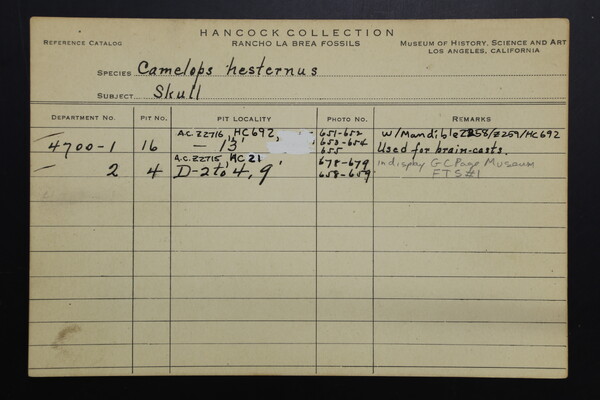 HANCOCK COLLECTION
REFERENCE CATALOG RANCHO LA BREA FOSSILS MUSEUM OF HISTORY, SCIENCE AND ART
LOS ANGELES, CALIFORNIA
SPECIES Camelops hesternus
SUBJECT Skull
DEPARTMENT NO. PIT NO. PIT LOCALITY PHOTO NO. REMARKS
A.C. ZZ716, HC692, 651-652 W/Mandible Z258/Z259/HC692
4700-1 16 - 13' 653-654 Used for brain-casts.
655
A.C. ZZ715, HC21 678-679 in display G C Page Museum
2 4 D-2 to 4, 9' 658-659 FTS#1